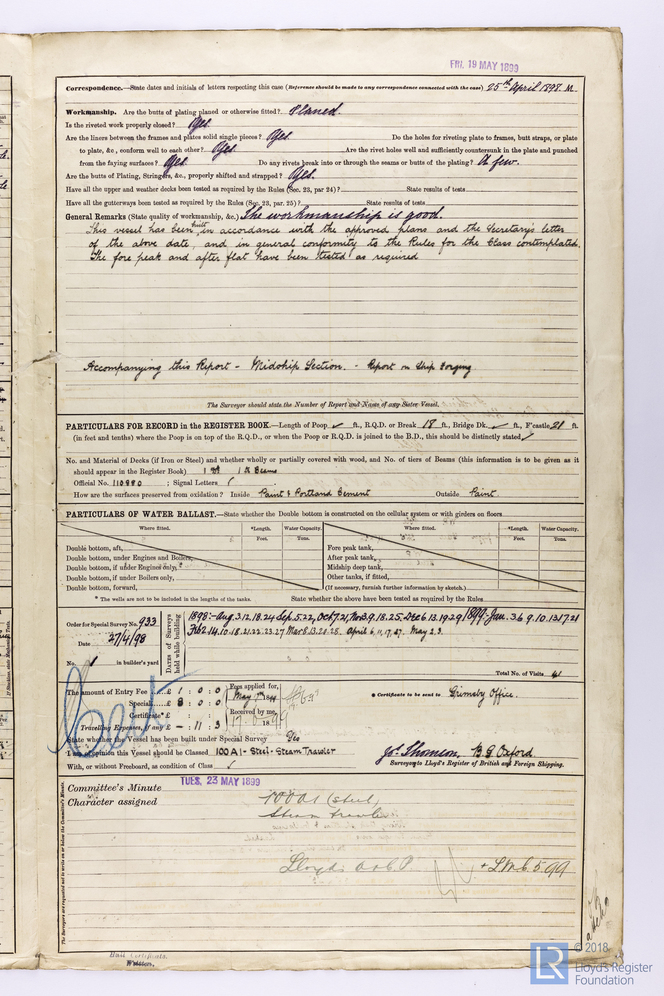 FRI. 19 MAY 1899
Correspondence.—State dates and initials of letters respecting this case (Reference should be made to any correspondence connected with the case) 25th April 1898 M.
Workmanship. Are the butts of plating planed or otherwise fitted? Planed.
Is the riveted work properly closed? Yes.
Are the liners between the frames and plates solid single pieces? Yes. Do the holes for riveting plate to frames, butt straps, or plate
to plate, &c., conform well to each other? Yes. Are the rivet holes well and sufficiently countersunk in the plate and punched
from the faying surfaces? Yes. Do any rivets break into or through the seams or butts of the plating? A few.
Are the butts of Plating, Stringers, &c., properly shifted and strapped? Yes.
Have all the upper and weather decks been tested as required by the Rules (Sec. 23, par 24)? State results of tests
Have all the gutterways been tested as required by the Rules (Sec. 23, par. 25)? State results of tests
General Remarks (State quality of workmanship, &c.) The workmanship is good.
This vessel has been built in accordance with the approved plans and the Secretary's letter
of the above date, and in general conformity to the Rules for the Class contemplated.
The fore peak and after flat have been tested as required
Accompanying this Report - Midship Section. - Report on Ship Forging
The Surveyor should state the Number of Report and Name of any Sister Vessel.
PARTICULARS FOR RECORD in the REGISTER BOOK.—Length of Poop ✓ ft., R.Q.D. or Break 18 ft., Bridge Dk. ✓ ft., F'castle 21 ft.
(in feet and tenths) where the Poop is on top of the R.Q.D., or when the Poop or R.Q.D. is joined to the B.D., this should be distinctly stated ✓
No. and Material of Decks (if Iron or Steel) and whether wholly or partially covered with wood, and No. of tiers of Beams (this information is to be given as it
should appear in the Register Book) 1 Dk 1 tr Beams
Official No. 110880 ; Signal Letters
How are the surfaces preserved from oxidation? Inside Paint & Portland Cement Outside Paint
PARTICULARS OF WATER BALLAST.—State whether the Double bottom is constructed on the cellular system or with girders on floors
Where fitted. *Length. Water Capacity. Where fitted. *Length. Water Capacity.
Feet. Tons. Feet. Tons.
Double bottom, aft, Fore peak tank,
Double bottom, under Engines and Boilers, After peak tank,
Double bottom, if under Engines only, Midship deep tank,
Double bottom, if under Boilers only, Other tanks, if fitted,
Double bottom, forward, (If necessary, furnish further information by sketch.)
* The wells are not to be included in the lengths of the tanks. State whether the above have been tested as required by the Rules
Order for Special Survey No. 933
Date 27/4/98
No. 1 in builder's yard
DATES of Surveys held while building
1898:-Aug.3.12.18.24 Sep.5.22, Oct.7.21, Nov.3.9.18.25. Dec 6.13.19.29 1899-Jan. 3.6.9.10.13.17.21
Feb 2.14.10.18.21.22.23.27 Mar 8.13.20.25. April 6.11.17.27. May 2.3.
Total No. of Visits 41
The amount of Entry Fee £ 1 : 0 : 0
Special £ 8 : 0 : 0
Certificate*
Travelling Expenses, if any £ - : 11 : 3
Fees applied for,
May 7th 1899
Received by me,
17.6.1899
* Certificate to be sent to Grimsby Office.
State whether the Vessel has been built under Special Survey Yes
I am of opinion this Vessel should be Classed 100A1 - Steel - Steam Trawler
With, or without Freeboard, as condition of Class ✓
Jos. Thomson, B.G. Oxford.
Surveyors to Lloyd's Register of British and Foreign Shipping.
Cert
TUES. 23 MAY 1899
Committee's Minute
Character assigned
100A1 (steel)
Steam Trawler
Lloyds A & C P.
+ LMC 5.99
The Surveyors are requested not to write on or below the Committee's Minute.
Hull Certificate.
© 2018
Lloyd's Register
Foundation
LR